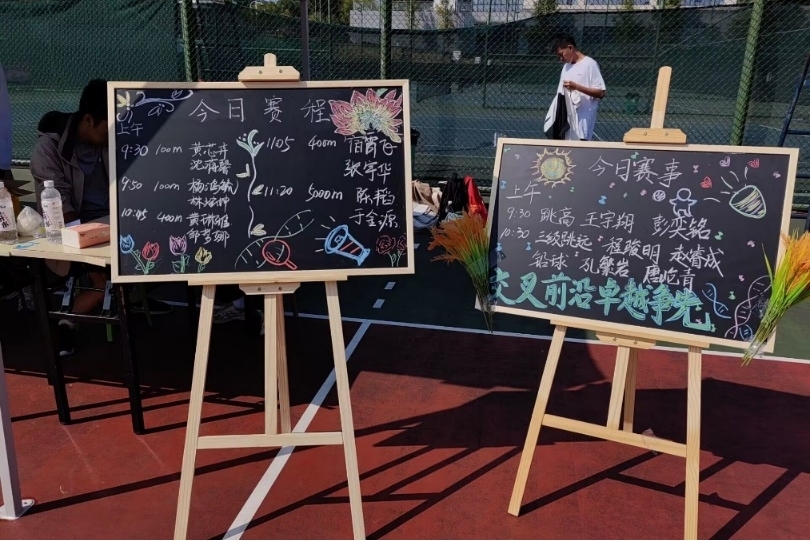 今日赛程
上午
9:30 100m 黄芯卉
沈蒋馨
9:50 100m
10:05 400m
11:05 400m 宿霄飞
张宇华
11:20 5000m 陈韬
于金源
今日赛事
上午
9:30 跳高 王宇翔 彭奕铭
10:30 三级跳远 程骏明 赵睿成
铅球 孔繁岩 唐屹青
交叉前沿卓越争先